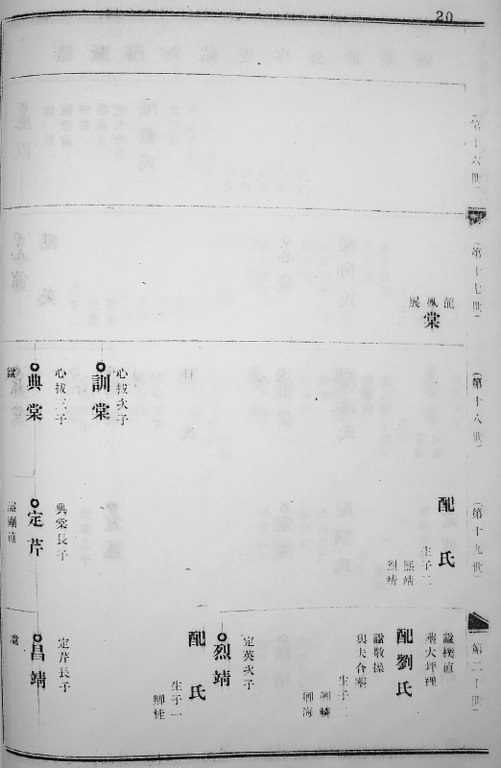 20
(第十六世)
(第十七世)
龍
鳳棠
展
(第十八世)
心拔次子
訓棠
心拔三子
典棠
(第十九世)
配 氏
生子二
熙靖
烈靖
典棠長子
定芹
(第二十世)
諡樸直
葬大坪裡
配劉氏
諡敬操
與夫合塟
生子二
卿麟
卿海
定英次子
烈靖
配 氏
生子一
卿桂
定芹長子
昌靖